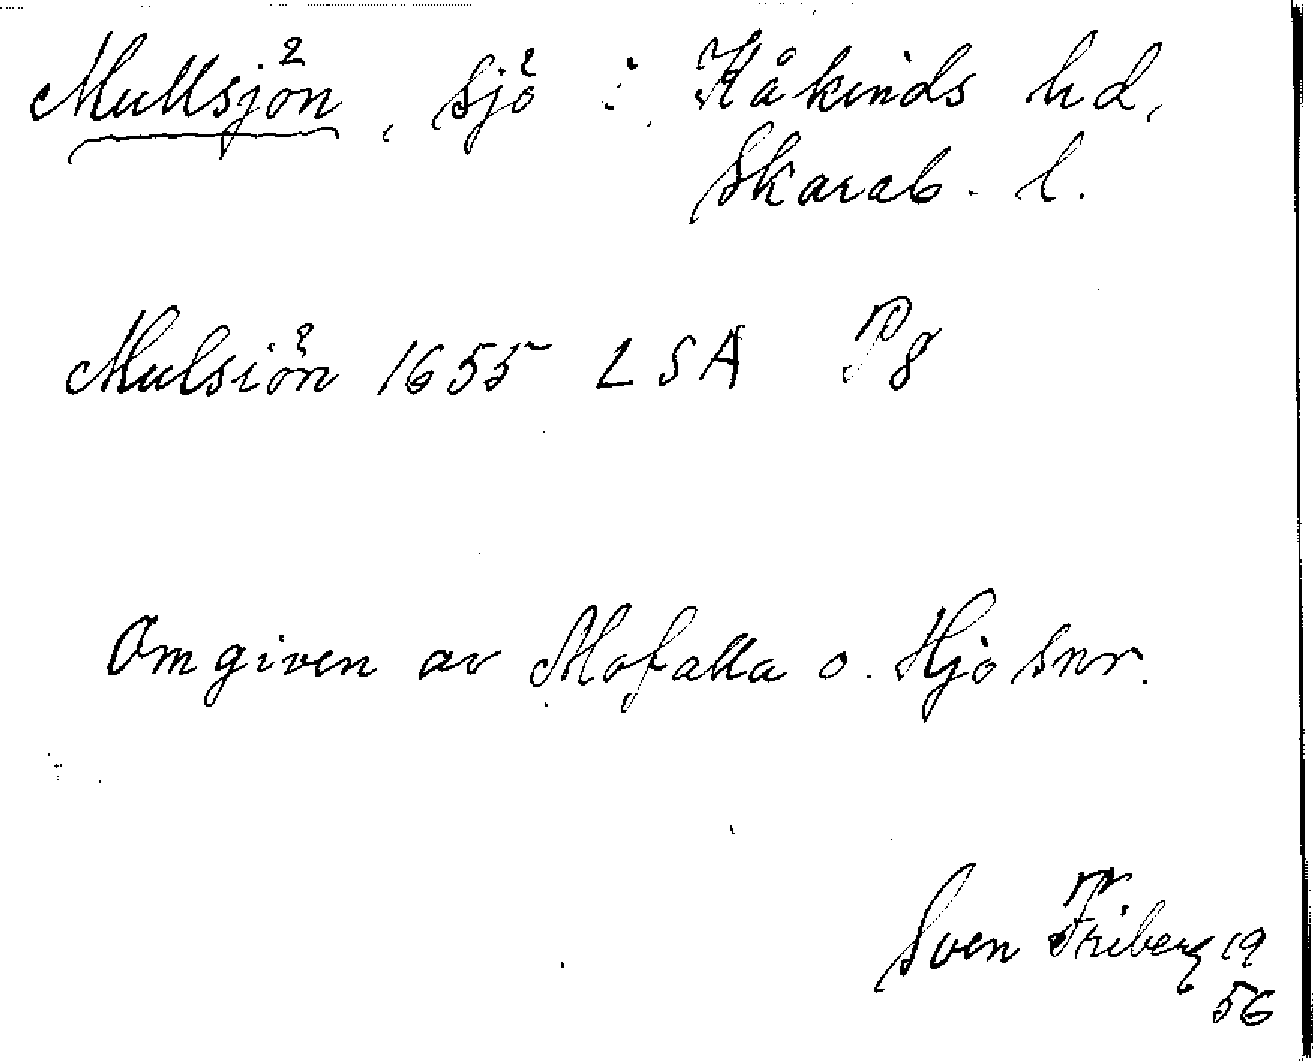 Mullsjön, sjö i Kåkinds hd,
Skarab. l.
Mulsiön 1655 LSA P8
Omgiven av Mofalla o. Hjo snr.
Sven Friberg 19
56